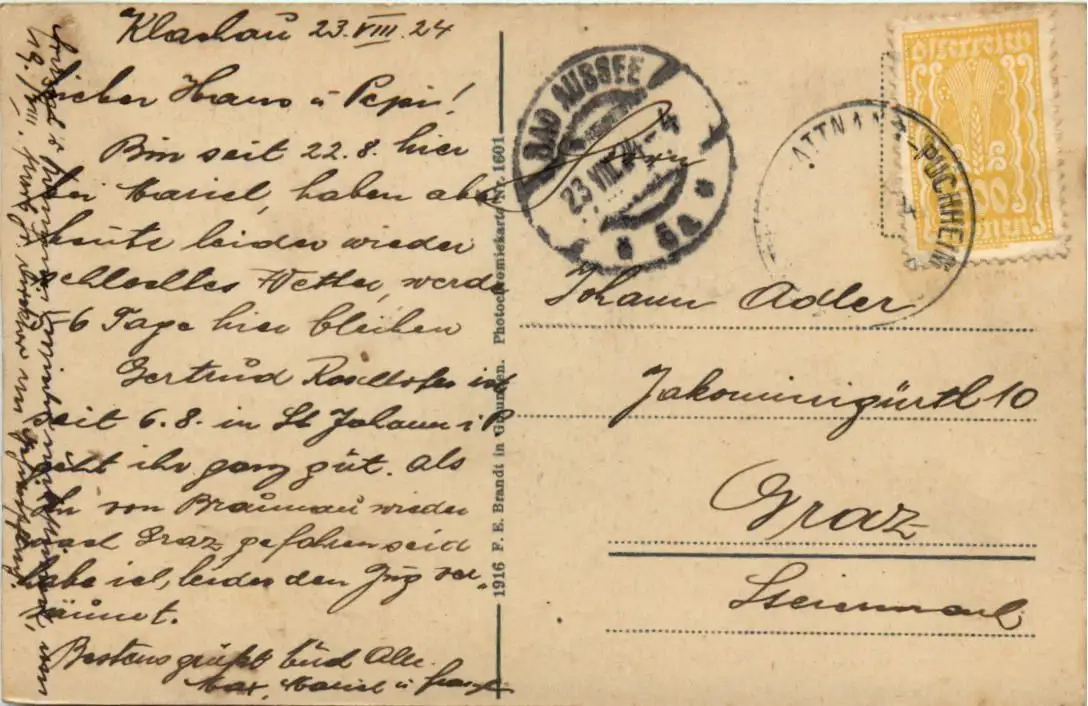 Klachau 23.VIII.24
Lieber Hans u Pepi!
Bin seit 22.8. hier
bei Mariel, haben aber
heute leider wieder
schlechtes Wetter, werde
5-6 Tage hier bleiben
Gertrud ist
seit 6.8. in St Johann i P
geht ihr ganz gut. Als
Ihr von Braunau wieder
nach Graz gefahren seid
habe ich leider den Zug ver-
säumt.
Bestens grüßt Euch Alle
Max, Mariel u Franzl
1916 F. E. Brandt in Gmunden. Photochromiekarte Nr. 1601
BAD AUSSEE
23 VIII 24-4
5a
ATTNANG-PUCHHEIM
Österreich
Kronen
Herrn
Johann Adler
Jakominigürtl 10
Graz
Steiermark